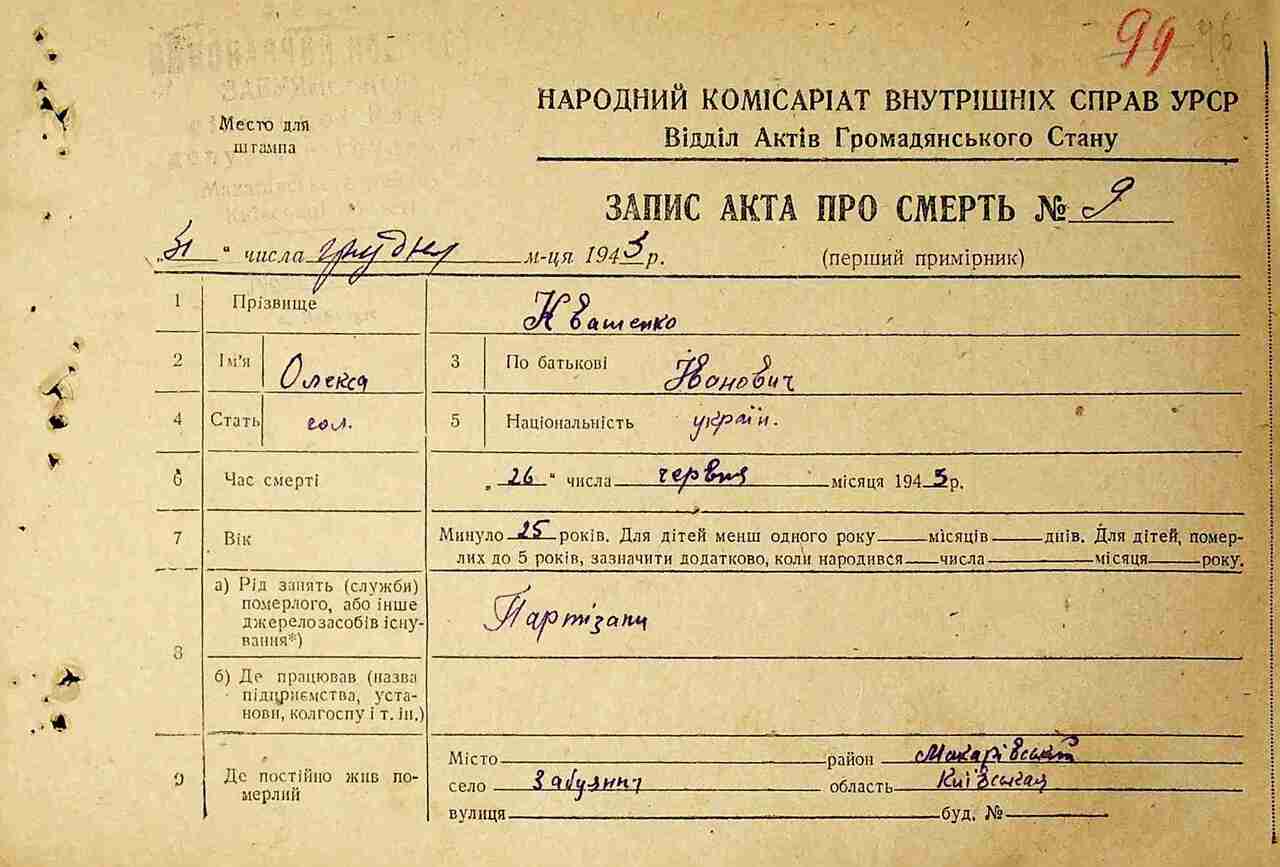 99
НАРОДНИЙ КОМІСАРІАТ ВНУТРІШНІХ СПРАВ УРСР
Відділ Актів Громадянського Стану
Место для
штампа
ЗАПИС АКТА ПРО СМЕРТЬ № 9
„31“ числа грудня м-ця 1943 р.
(перший примірник)
1 Прізвище Квашенко
2 Ім'я Олекса 3 По батькові Іванович
4 Стать чол. 5 Національність україн.
6 Час смерті „26“ числа червня місяця 1943 р.
7 Вік Минуло 25 років. Для дітей менш одного року місяців днів. Для дітей, помер-
лих до 5 років, зазначити додатково, коли народився числа місяця року.
8 а) Рід занять (служби)
померлого, або інше
джерело засобів існу-
вання*)
Партізани
б) Де працював (назва
підприємства, уста-
нови, колгоспу і т. ін.)
9 Де постійно жив по-
мерлий
Місто район Макарівський
село Забуянни область Київська
вулиця буд. №